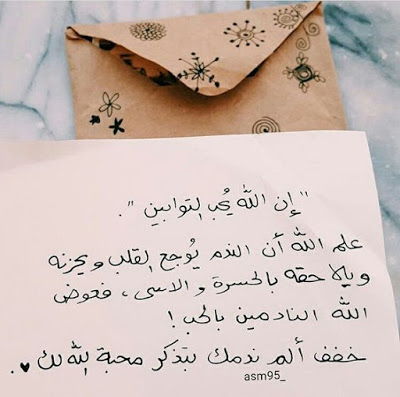 "إن الله يُحب التوابين".
علم الله أن الندم يُوجع القلب ويحزنه
ويلاحقه بالحسرة والاسى، فعوض
الله النادمين بالحب!
خفف ألم ندمك بتذكر محبة الله لك ♥.
asm95_